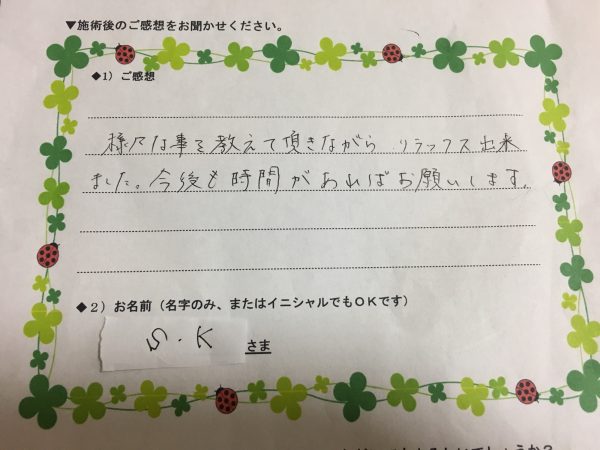 ▼施術後のご感想をお聞かせください。
◆1）ご感想
様々な事を教えて頂きながら リラックス出来
ました。今後も時間があればお願いします。
◆2）お名前（名字のみ、またはイニシャルでもOKです）
S.K さま